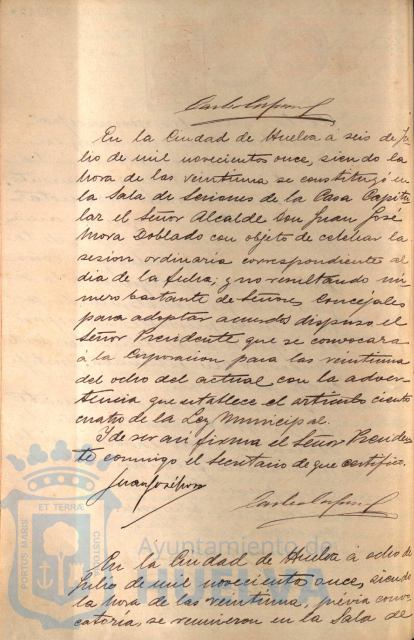 En la Ciudad de Huelva á seis de Ju-
lio de mil novecientos once, siendo la
hora de las veintiuna se constituyó en
la Sala de Sesiones de la Casa Capitu
lar el Señor Alcalde Don Juan José
Mora Doblado con objeto de celebrar la
sesion ordinaria correspondiente al
dia de la fecha, y no resultando nú
mero bastante de Señores Concejales
para adoptar acuerdos dispuso el
Señor Presidente que se convocara
á la Corporacion para las veintiuna
del ocho del actual con la adver
tencia que establece el artículo ciento
cuatro de la Ley Municipal.
Y de ser así firma el Señor Presiden
te conmigo el Secretario de que certifico.
Juan José Mora
En la Ciudad de Huelva á ocho de
Julio de mil novecientos once, siendo
la hora de las veintiuna, prévia convo
catoria, se reunieron en la Sala de
PORTUS MARIS ET TERRÆ CUSTODIA
Ayuntamiento de
HUELVA